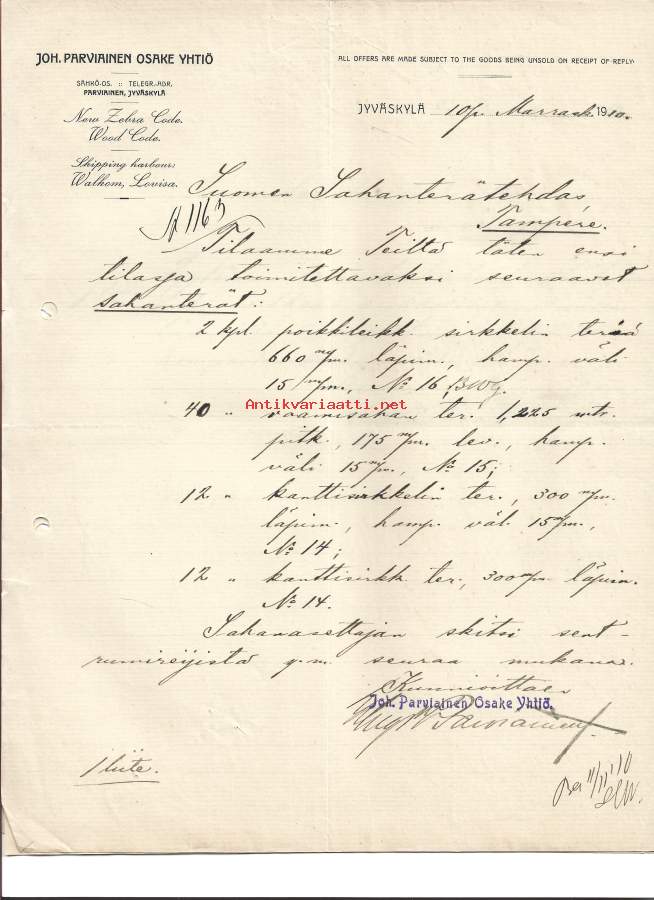 JOH. PARVIAINEN OSAKE YHTIÖ
SÄHKÖ-OS. :: TELEGR.-ADR.
PARVIAINEN, JYVÄSKYLÄ
New Zebra Code.
Wood Code.
Shipping harbour:
Walhom, Lovisa.
ALL OFFERS ARE MADE SUBJECT TO THE GOODS BEING UNSOLD ON RECEIPT OF REPLY.
JYVÄSKYLÄ 10/p. Marrask. 1910.
Suomen Sahanterätehdas
Tampére.
Tilaamme Teiltä täten ensi
tilassa toimitettavaksi seuraavat
sahanterät:
2 kpl. poikkileikk. sirkkelin teriä
660 m/m. läpim., hamp. väli
15 m/m., No 16, BWg.
Antikvariaatti.net
40 " raamisahan ter. 1,225 mtr.
pitk., 175 m/m. lev., hamp.
väli 15 m/m., No 15;
12 " kanttisirkkelin ter., 300 m/m.
läpim., hamp. väl. 15 m/m.,
No 14;
12 " kanttisirkk. ter., 300 m/m. läpim.
No 14.
Sahanasettajan skitsi sent-
rumireijistä y.m. seuraa mukana.
Kunnioittaen
Joh. Parviainen Osake Yhtiö.
1 liite.
11/11 '10